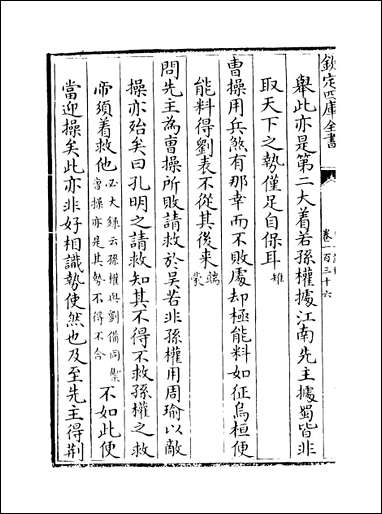 欽定四庫全書
卷一百三十六
舉此亦是第二大着若孫權據江南先主據蜀皆非
取天下之勢僅足自保耳雉
曹操用兵煞有那幸而不敗處却極能料如征烏桓便
能料得劉表不從其後來端蒙
問先主為曹操所敗請救於吳若非孫權用周瑜以敵
操亦殆矣曰孔明之請救知其不得不救孫權之救
備須着救他必大録云孫權與劉備同禦曹操亦是其勢不得不合不如此便
當迎操矣此亦非好相識勢使然也及至先主得荆